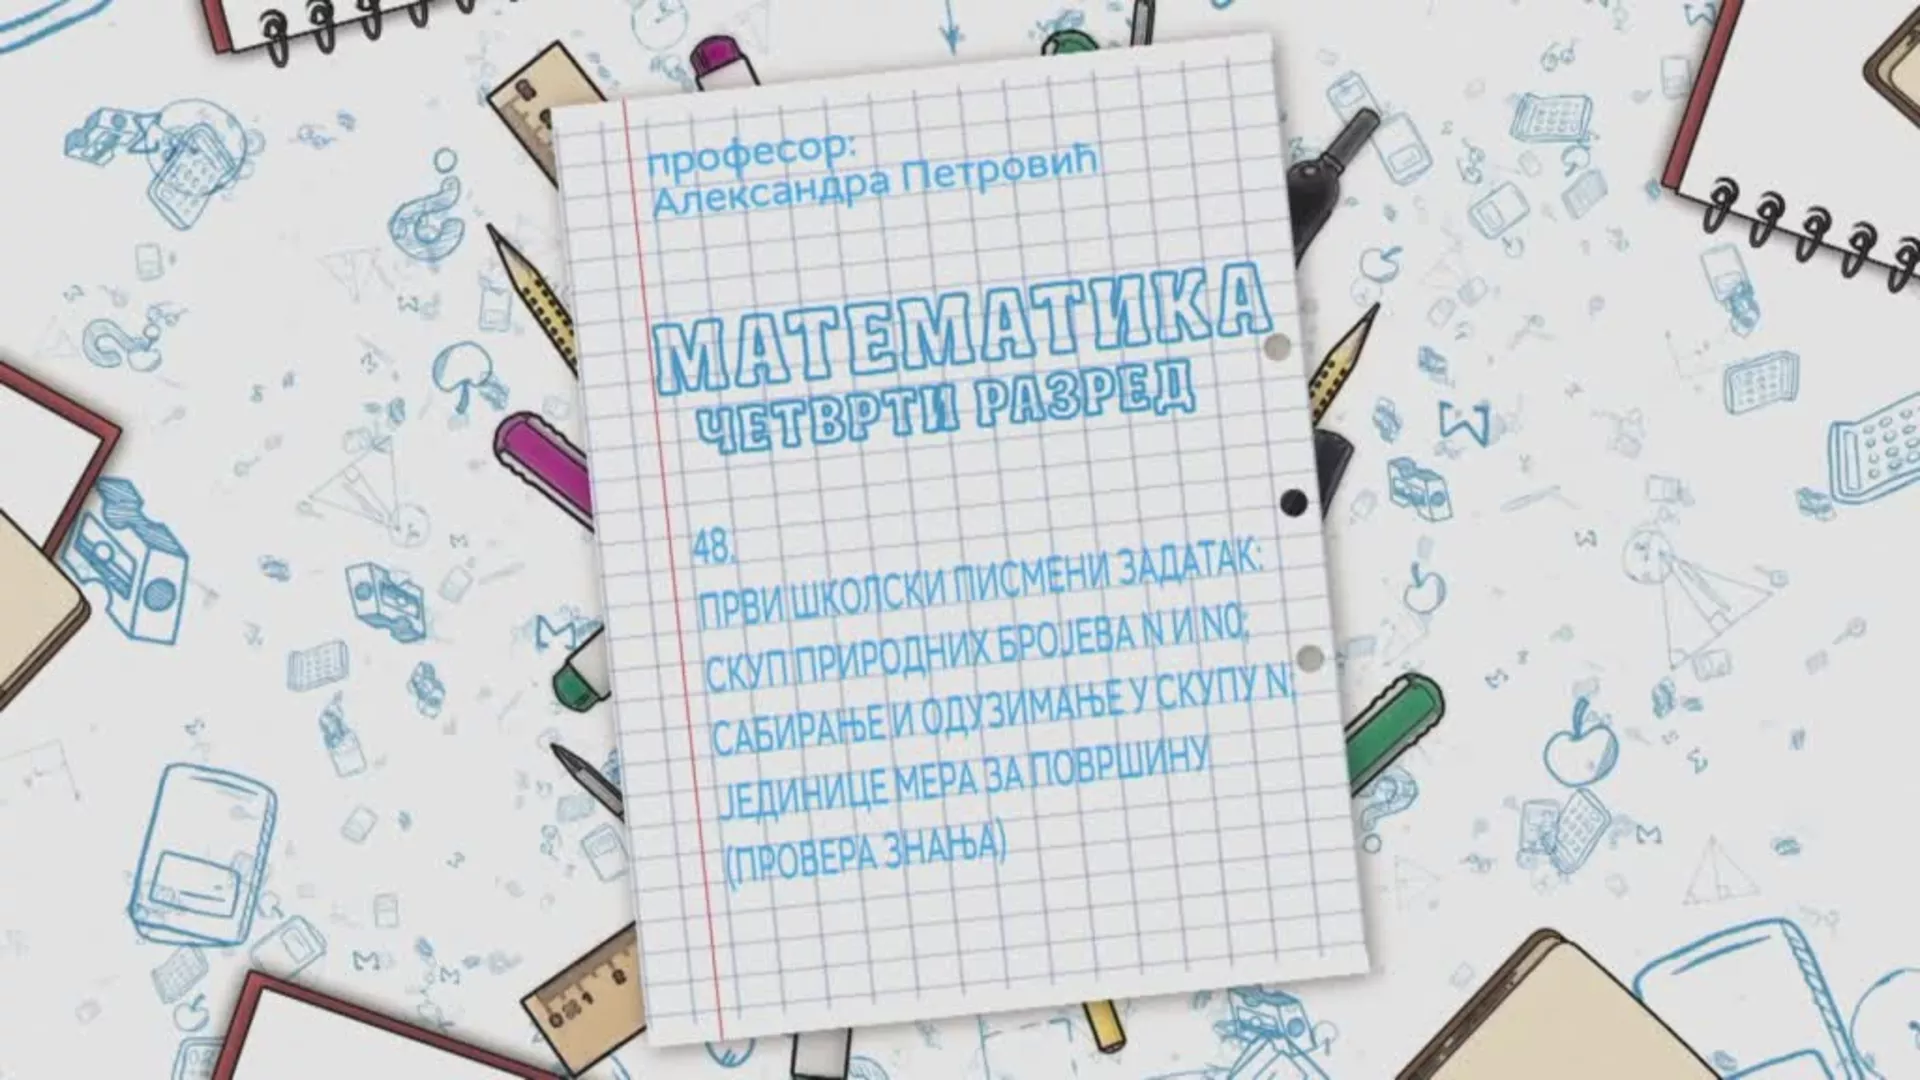 професор:
Александра Петровић
МАТЕМАТИКА
ЧЕТВРТИ РАЗРЕД
48.
ПРВИ ШКОЛСКИ ПИСМЕНИ ЗАДАТАК:
СКУП ПРИРОДНИХ БРОЈЕВА N И N0;
САБИРАЊЕ И ОДУЗИМАЊЕ У СКУПУ N;
ЈЕДИНИЦЕ МЕРА ЗА ПОВРШИНУ
(ПРОВЕРА ЗНАЊА)